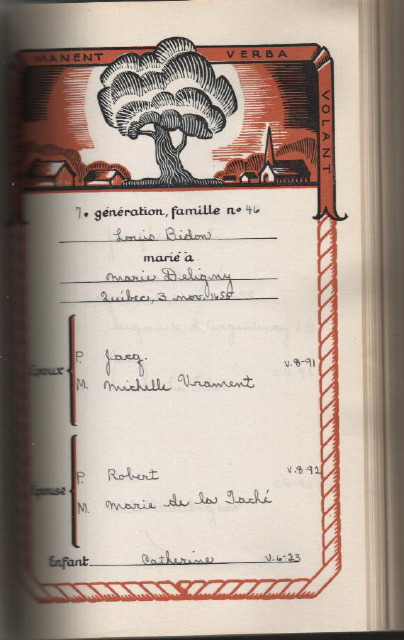 MANENT VERBA
VOLANT
7e génération, famille no 46
Louis Bidon
marié à
Marie Deligny
Québec, 3 nov. 1655
Époux
P. Jacq. V.8-91
M. Michelle Vrament
Épouse
P. Robert V.8-92
M. Marie de la Taché
Enfant Catherine V.6-23